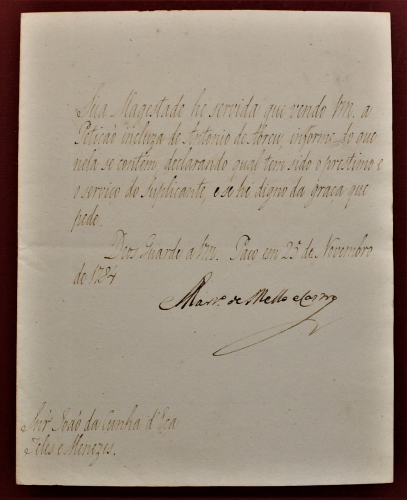 Sua Magestade he servida que vendo Vm. a
Petição incluza de Antonio de Abreu, informe do que
nela se contém, declarando qual tem sido o prestimo e
o serviço do Suplicante, e se he digno da graça que
pede.
Deos Guarde a Vm. Paço em 25 de Novembro
de 1784
Mart.º de Mello e Castro
Snr. João da Cunha d'Eça
Teles e Menezes.